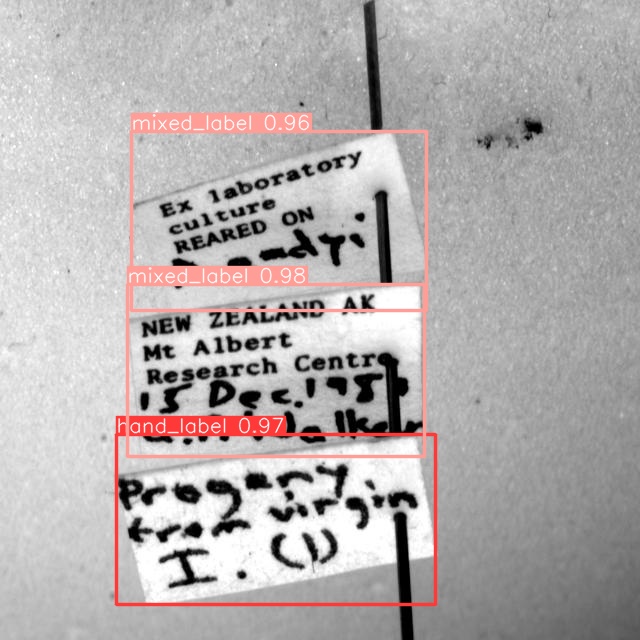 mixed_label 0.96
Ex laboratory
culture
REARED ON
mixed_label 0.98
NEW ZEALAND AK
Mt Albert
Research Centre
15 Dec. 198
hand_label 0.97
Progeny
from virgin
I. (1)